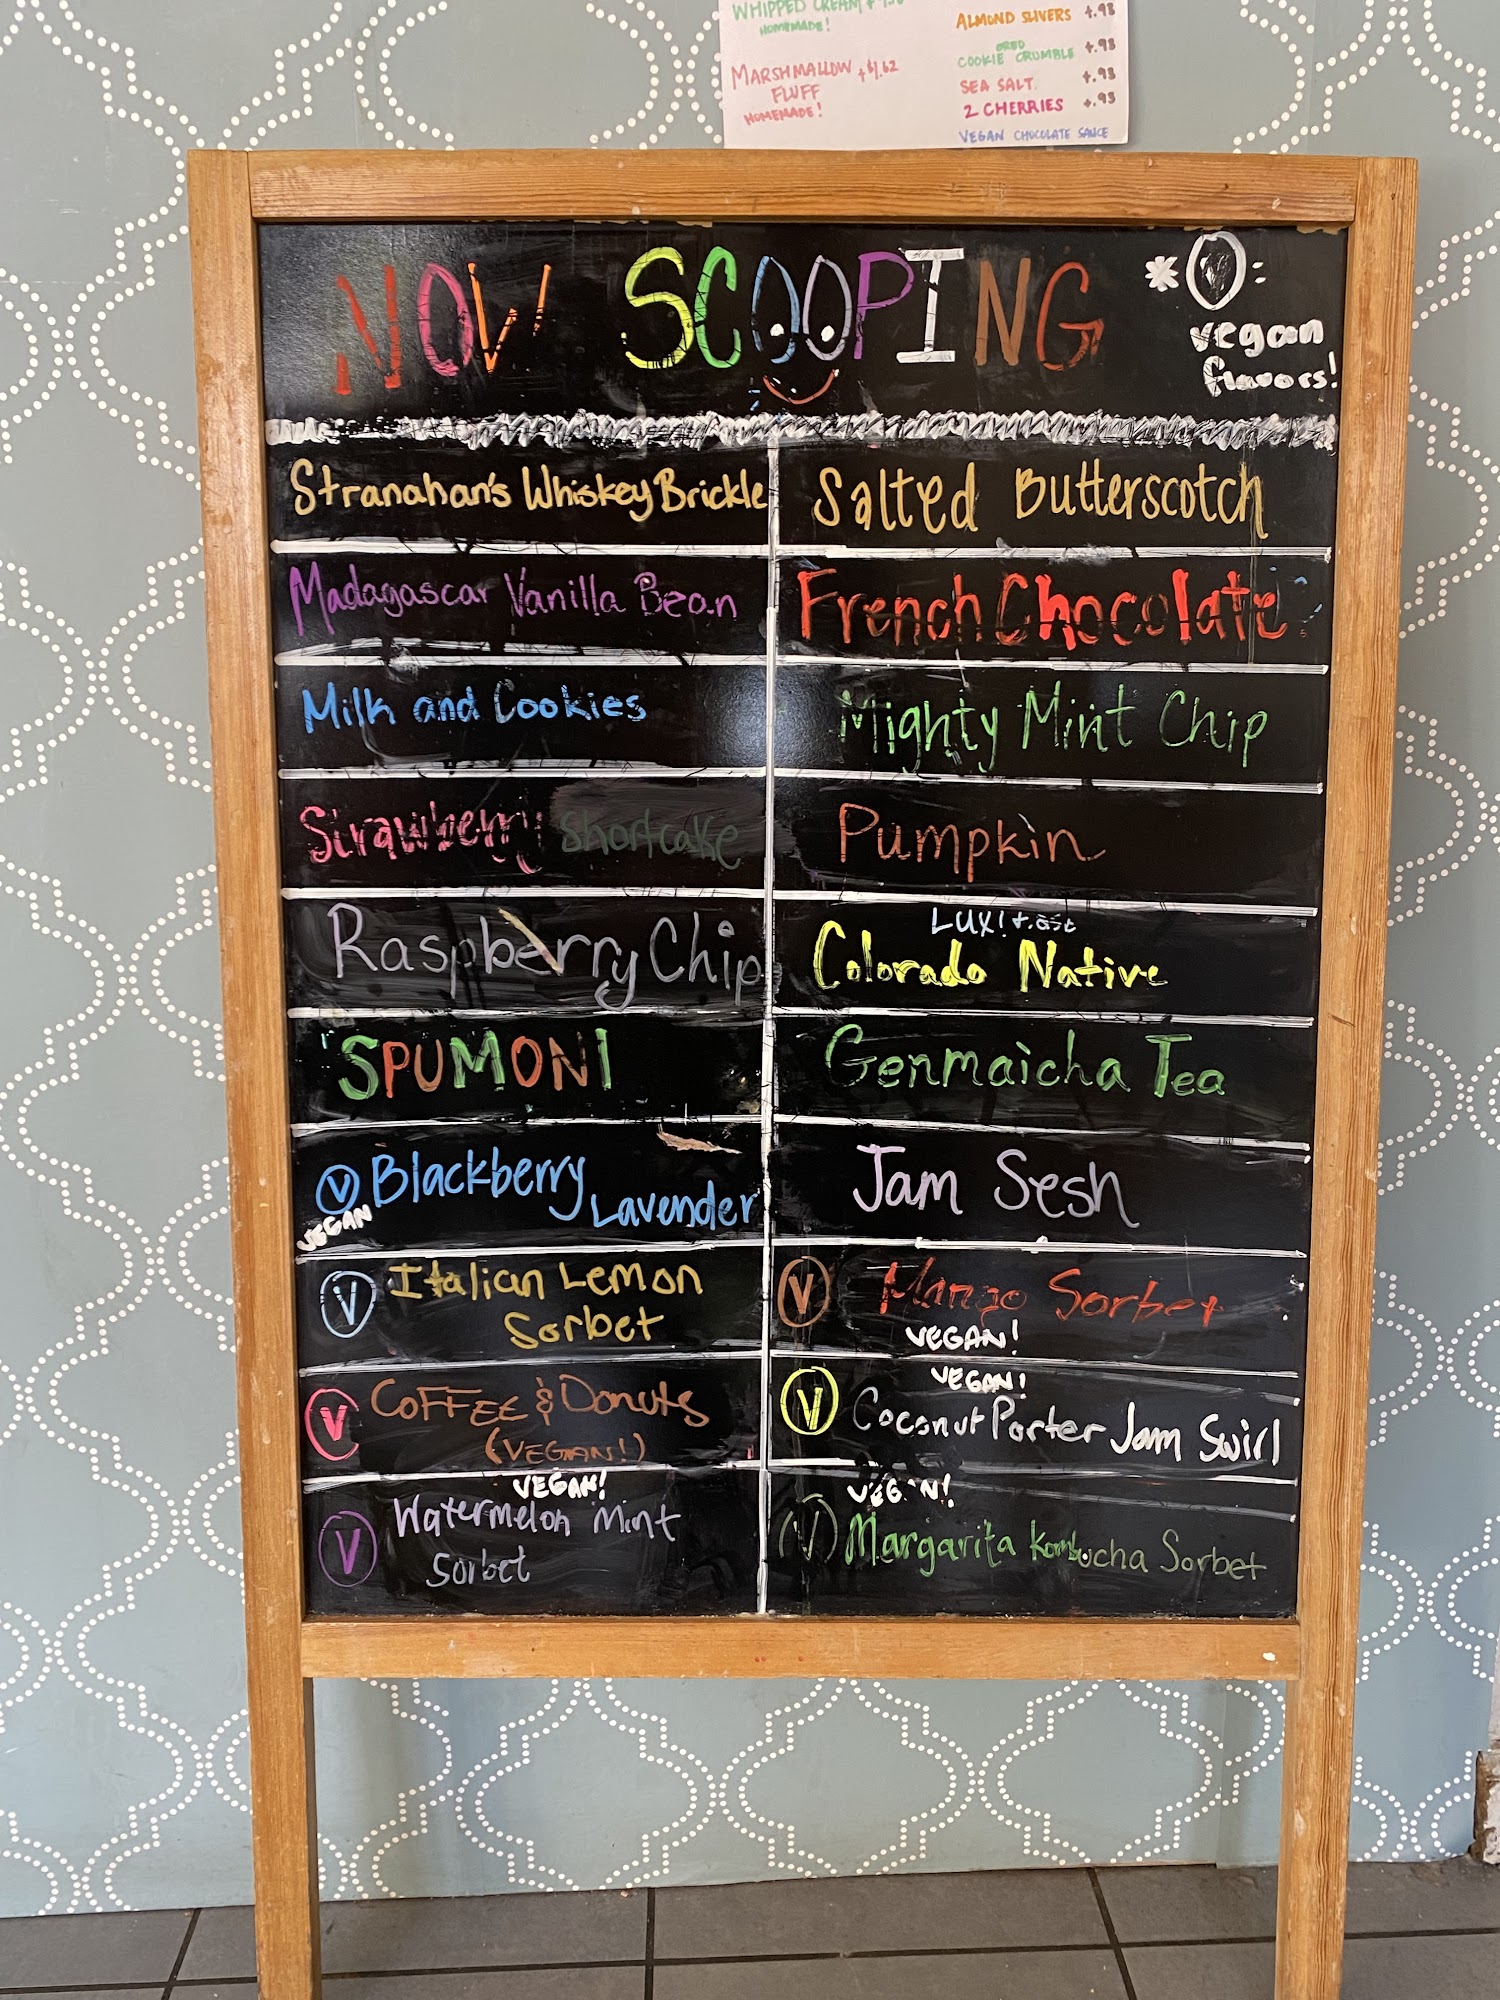 WHIPPED CREAM
HOMEMADE!
MARSHMALLOW +$1.62
FLUFF
HOMEMADE!
ALMOND SLIVERS +.93
OREO
COOKIE CRUMBLE +.93
SEA SALT. +.93
2 CHERRIES +.93
VEGAN CHOCOLATE SAUCE
NOW SCOOPING
*O:
vegan
flavors!
Stranahan's Whiskey Brickle
Madagascar Vanilla Bean
Milk and Cookies
Strawberry shortcake
Raspberry Chip
SPUMONI
V Blackberry
Lavender
VEGAN
V Italian Lemon
Sorbet
V COFFEE & Donuts
(VEGAN!)
VEGAN!
V Watermelon Mint
Sorbet
Salted Butterscotch
French Chocolate
Mighty Mint Chip
Pumpkin
LUX!
Colorado Native
Genmaicha Tea
Jam Sesh
V Mango Sorbet
VEGAN!
VEGAN!
V Coconut Porter Jam Swirl
VEGAN!
V Margarita Kombucha Sorbet